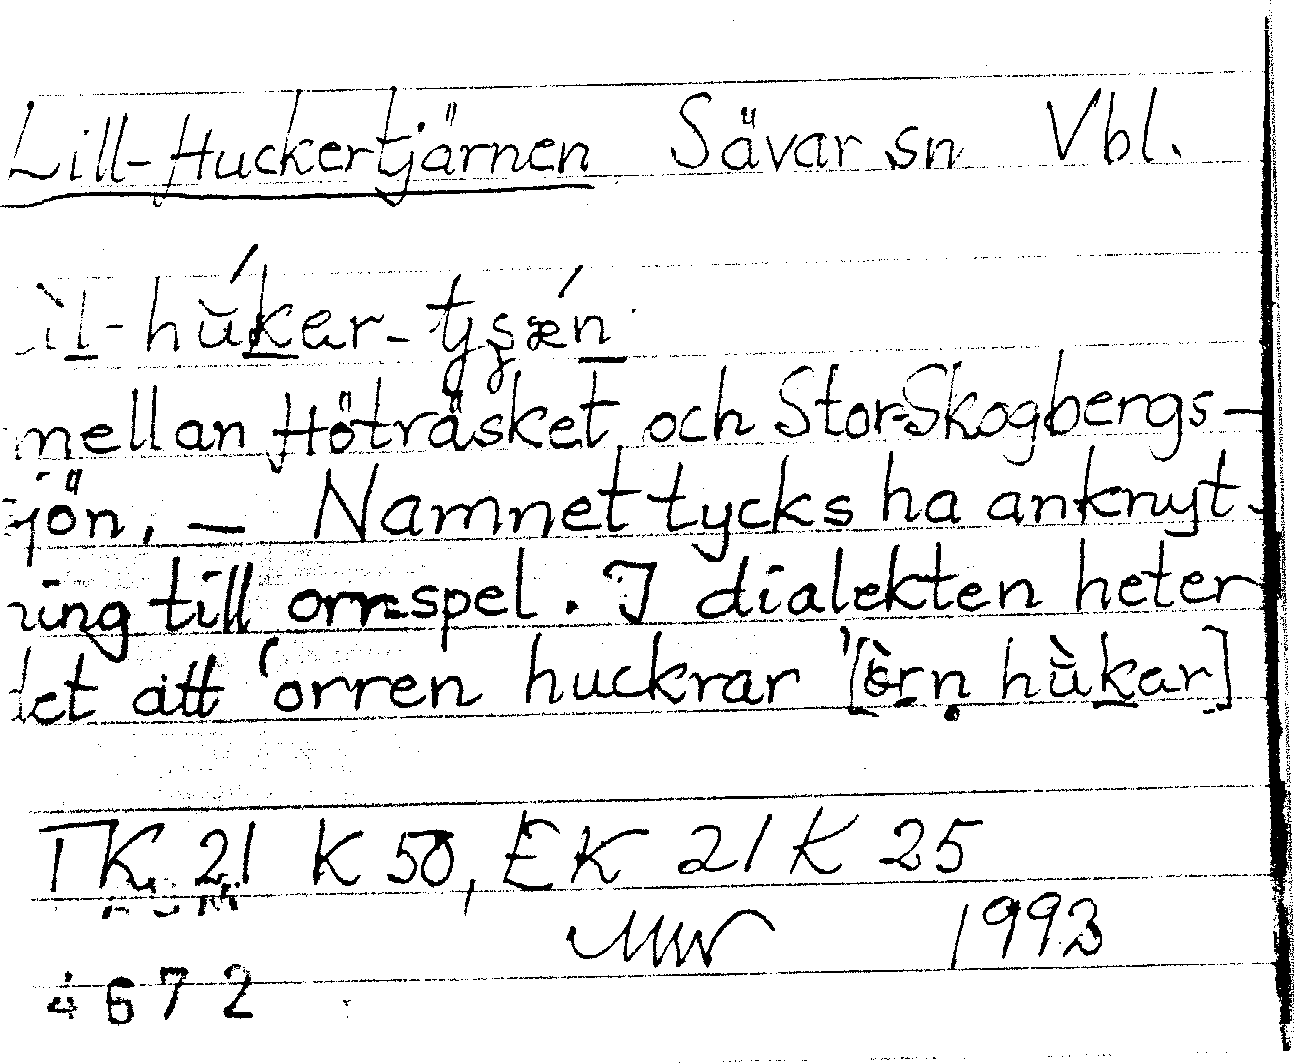 Lill-Huckertjärnen Sävar sn Vbl.
ìl-hŭ́kar-tjʂǽn
mellan Höträsket och Stor-Skogbergs-
jön. — Namnet tycks ha anknyt-
ning till orr-spel. I dialekten heter
det att 'orren huckrar' [òrn̥ hŭ̀kar]
TK 21 K 50, EK 21 K 25
MW 1993
4672